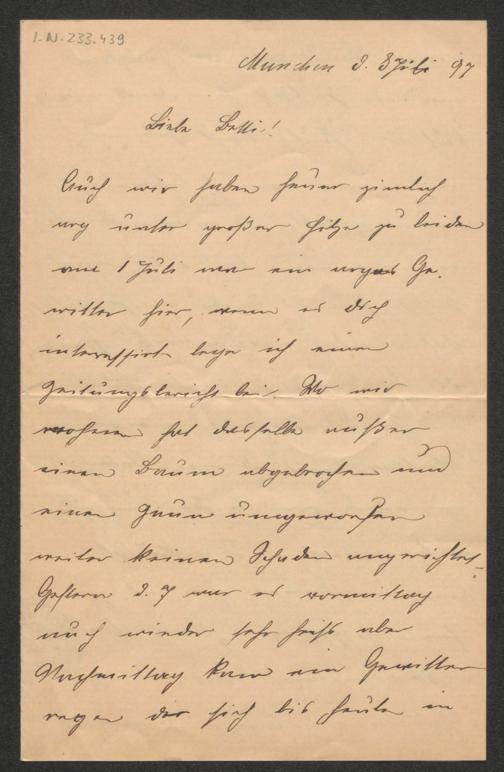 I.N. 233.439
München d. 8 Juli 97
Liebe Betti!
Auch wir haben heuer zimlich
arg unter großer Hitze zu leiden
am 1 Juli war ein arges Ge-
witter hier, wenn es dich
interessirt lege ich einen
Zeitungsbericht bei. Wo wir
wohnen hat dasselbe außer
einen Baum abgebrochen und
einen Zaun umgeworfen
weiter keinen Schaden angerichtet.
Gestern d. 7 war es vormittag
auch wieder sehr heiß aber
Nachmittag kam ein Gewitter
regen der sich bis heute in